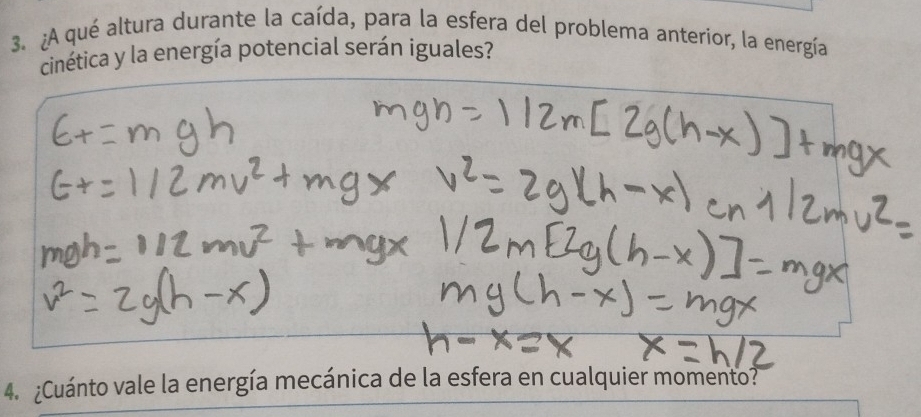 3. ¿A qué altura durante la caída, para la esfera del problema anterior, la energía
cinética y la energía potencial serán iguales?
Et = mgh
Et = 1/2mv² + mgx
mgh = 1/2mv² + mgx
v² = 2g(h-x)
mgh = 1/2m[2g(h-x)] + mgx
v² = 2g(h-x) en 1/2mv² =
1/2m[2g(h-x)] = mgx
mg(h-x) = mgx
h-x=x x=h/2
4. ¿Cuánto vale la energía mecánica de la esfera en cualquier momento?